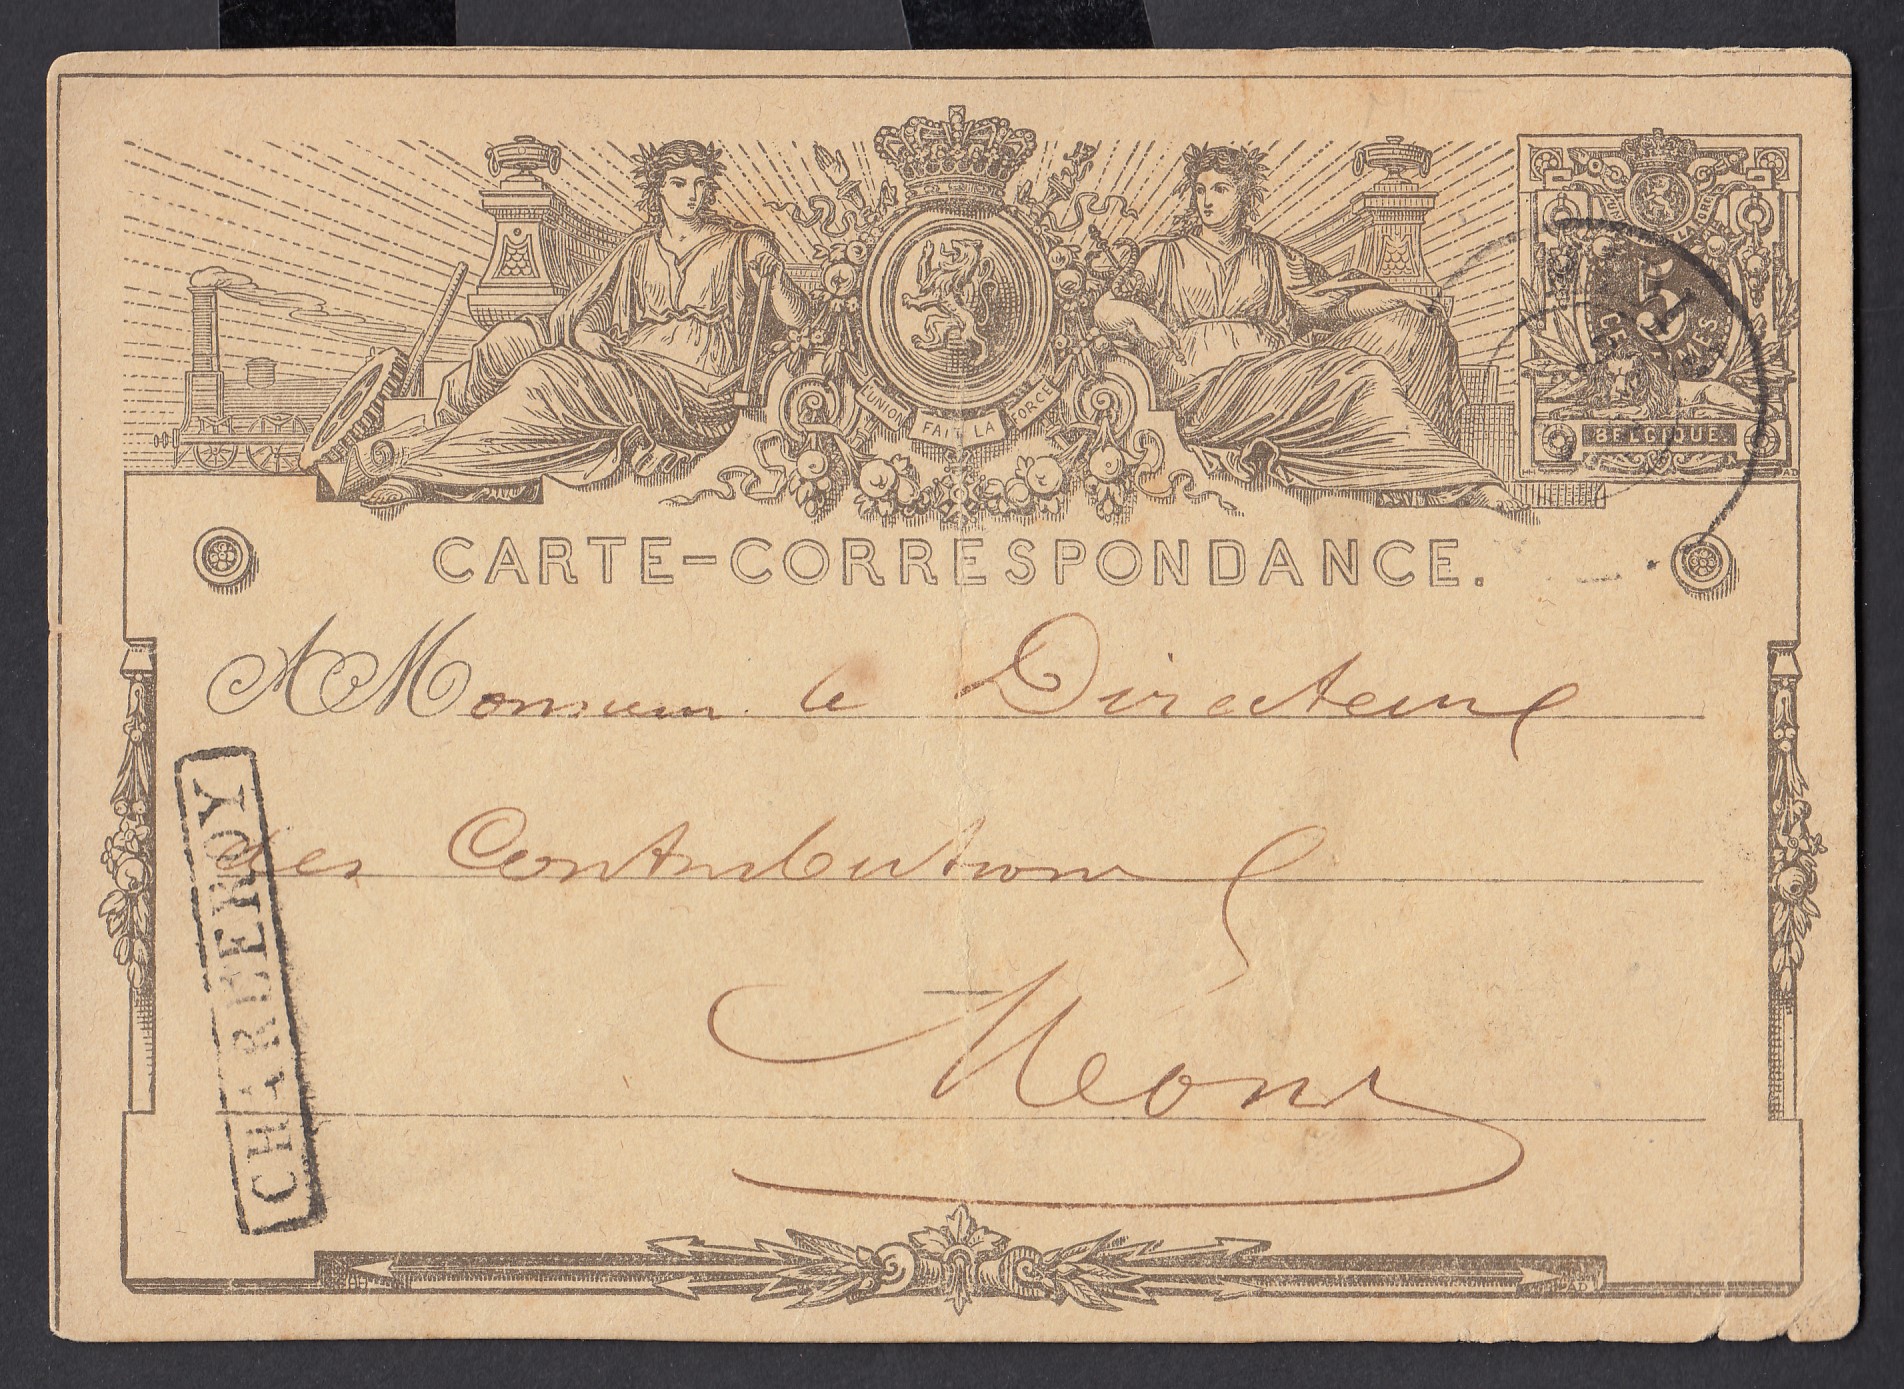 L'UNION FAIT LA FORCE
5
CENTIMES
BELGIQUE.
HH
AD
CARTE-CORRESPONDANCE.
A Monsieur le Directeur
des Contributions
Mons
CHARLEROY
HH
AD